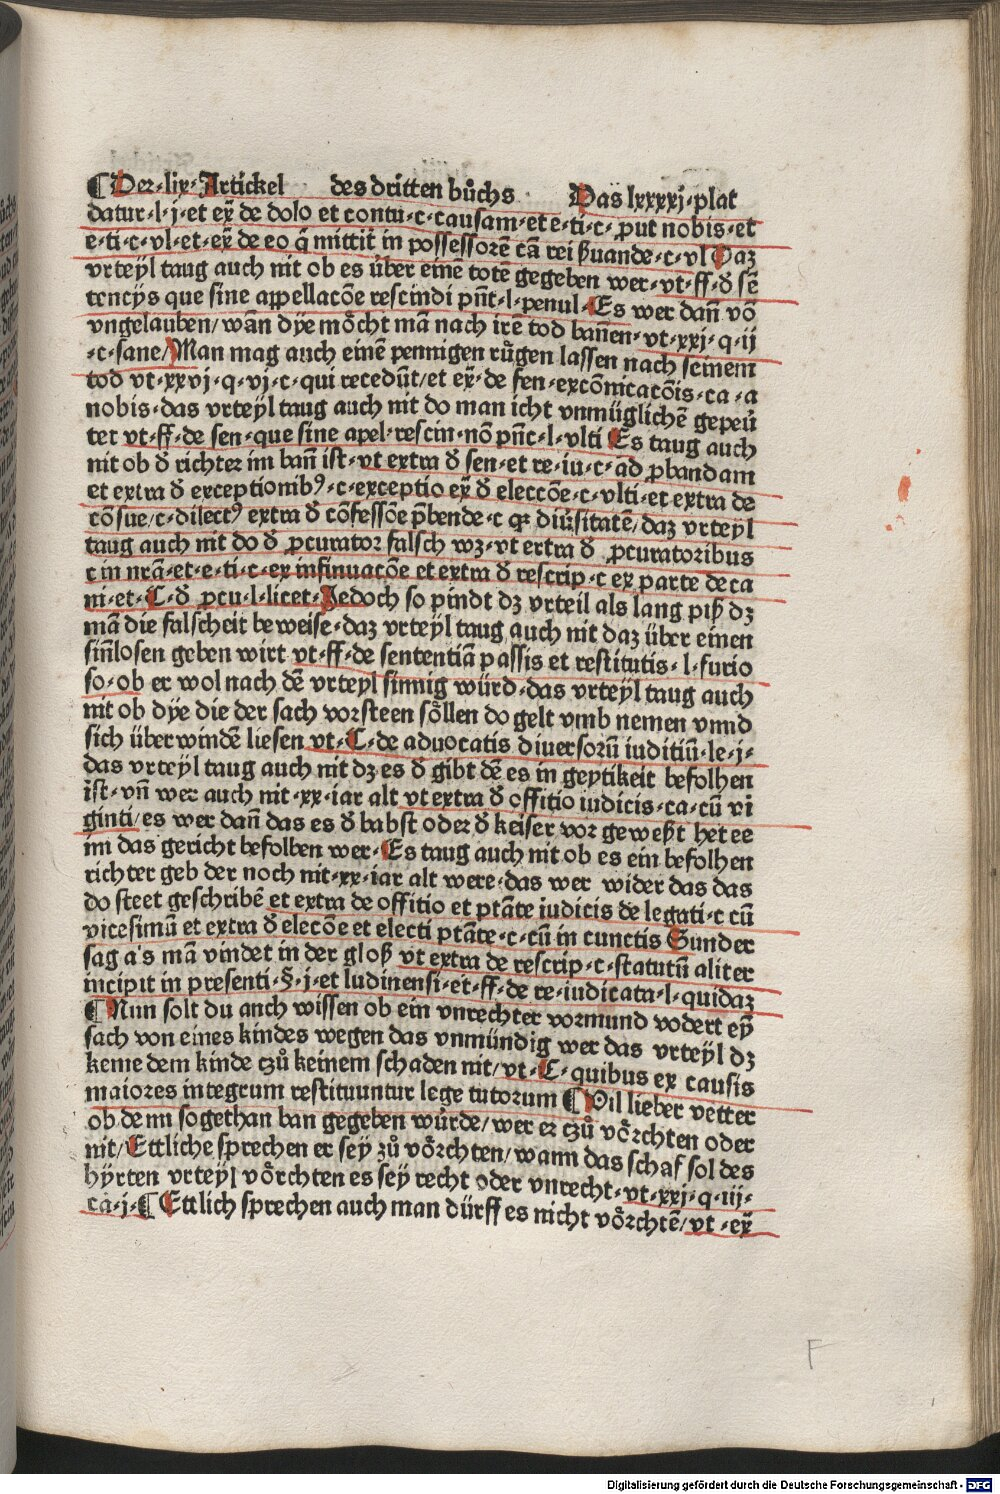 ¶Der·lix·Artickel des dritten bůchs Das lxxxxj·plat
datur·l·j·et ex̄ de dolo et contu·c·causam·et e·ti·c·ꝓut nobis·et
e·ti·c·vl·et·ex̄ de eo q̄ mittit̄ in possessorē cā rei ẜuande·c·vl Daz
vrteyl taug auch nit ob es über einē totē gegeben wer·vt·ff·ꝺ sē
tencijs que sine appellacōe rescindi pn̄t·l·penul·Es wer dan̄ vō
vngelauben/wan̄ dÿe mȯcht mā nach irē tod ban̄en·vt·xxj·q·ij
·c·sane/Man mag auch einē pennigen růgen lassen nach seinem
tod vt·xxvj·q·vj·c·qui recedūt/et ex̄·de sen·excōmicacōis·ca·a
nobis·das vrteyl taug auch nit do man icht vnmüglichē gepeu̇
tet vt·ff·de sen·que sine apel·rescin·nō pn̄c·l·vlti Es taug auch
nit ob ꝺ richter im ban̄ ist·vt extra ꝺ sen·et re·iu·c·ad ꝓbandam
et extra ꝺ exceptionibꝰ·c·exceptio ex̄ ꝺ eleccōe·c·vlti·et extra de
cōsue/c·dilectꝰ extra ꝺ cōfessōe p̄bende·c qꝛ diu̇sitatē/daz vrteyl
taug auch nit do ꝺ ꝓcurator falsch wz·vt ertra ꝺ ꝓcuratoribus
c in nrā·et·e·ti·c·ex insinuacōe et extra ꝺ rescrip·c ex parte deca
ni·et·C·ꝺ ꝓcu·l·licet·Jedoch so pindt dz vrteil als lang piß dz
mā die falscheit beweise·daz vrteyl taug auch nit daz über einen
sin̄losen geben wirt vt·ff·de sententiā passis et restitutis·l·furio
so·ob er wol nach dē vrteyl sinnig würd·das vrteyl taug auch
nit ob dÿe die der sach vorsteen söllen do gelt vmb nemen vnnd
sich überwindē liesen vt·C·de aduocatis diuersorū iuditiū·le·j·
das vrteyl taug auch nit dz es ꝺ gibt dē es in geytikeit befolhen
ist·vn̄ wer auch nit·xx·iar alt vt extra ꝺ offitio iudicis·ca·cū vi
ginti/es wer dan̄ das es ꝺ babst oder ꝺ keiser vor geweßt het ee
im das gericht befolben wer·Es taug auch nit ob es ein befolhen
richter geb der noch nit·xx·iar alt were·das wer wider das das
do steet geschribē et extra de offitio et ptāte iudicis de legati·c cū
vicesimū et extra ꝺ elecōe et electi ptāte·c·cū in cunctis Sunder
sag a's mā vindet in der gloß vt extra de rescrip·c·statutū aliter
incipit in presenti·§·j·et ludinensi·et·ff·de re·iudicata·l·quidaz
¶Nun solt du anch wissen ob ein vnrechter vormund vodert eÿ
sach von eines kindes wegen das vnmündig wer das vrteyl dz
keme dem kinde tzů keinem schaden nit/vt·C·quibus ex causis
maiores integrum restituuntur lege tutorum ¶Vil lieber vetter
ob de mi sogethan ban gegeben wu̇rde/wer er tzů vȯrchten oder
nit/Ettliche sprechen er sey zů vȯrchten/wann das schaf sol des
hÿrten vrteyl vȯrchten es sey recht oder vnrecht·vt·xxj·q·iij·
ca·j·¶Ettlich sprechen auch man dürff es nicht vȯrchtē/vt·ex̄
F
Digitalisierung gefördert durch die Deutsche Forschungsgemeinschaft - DFG